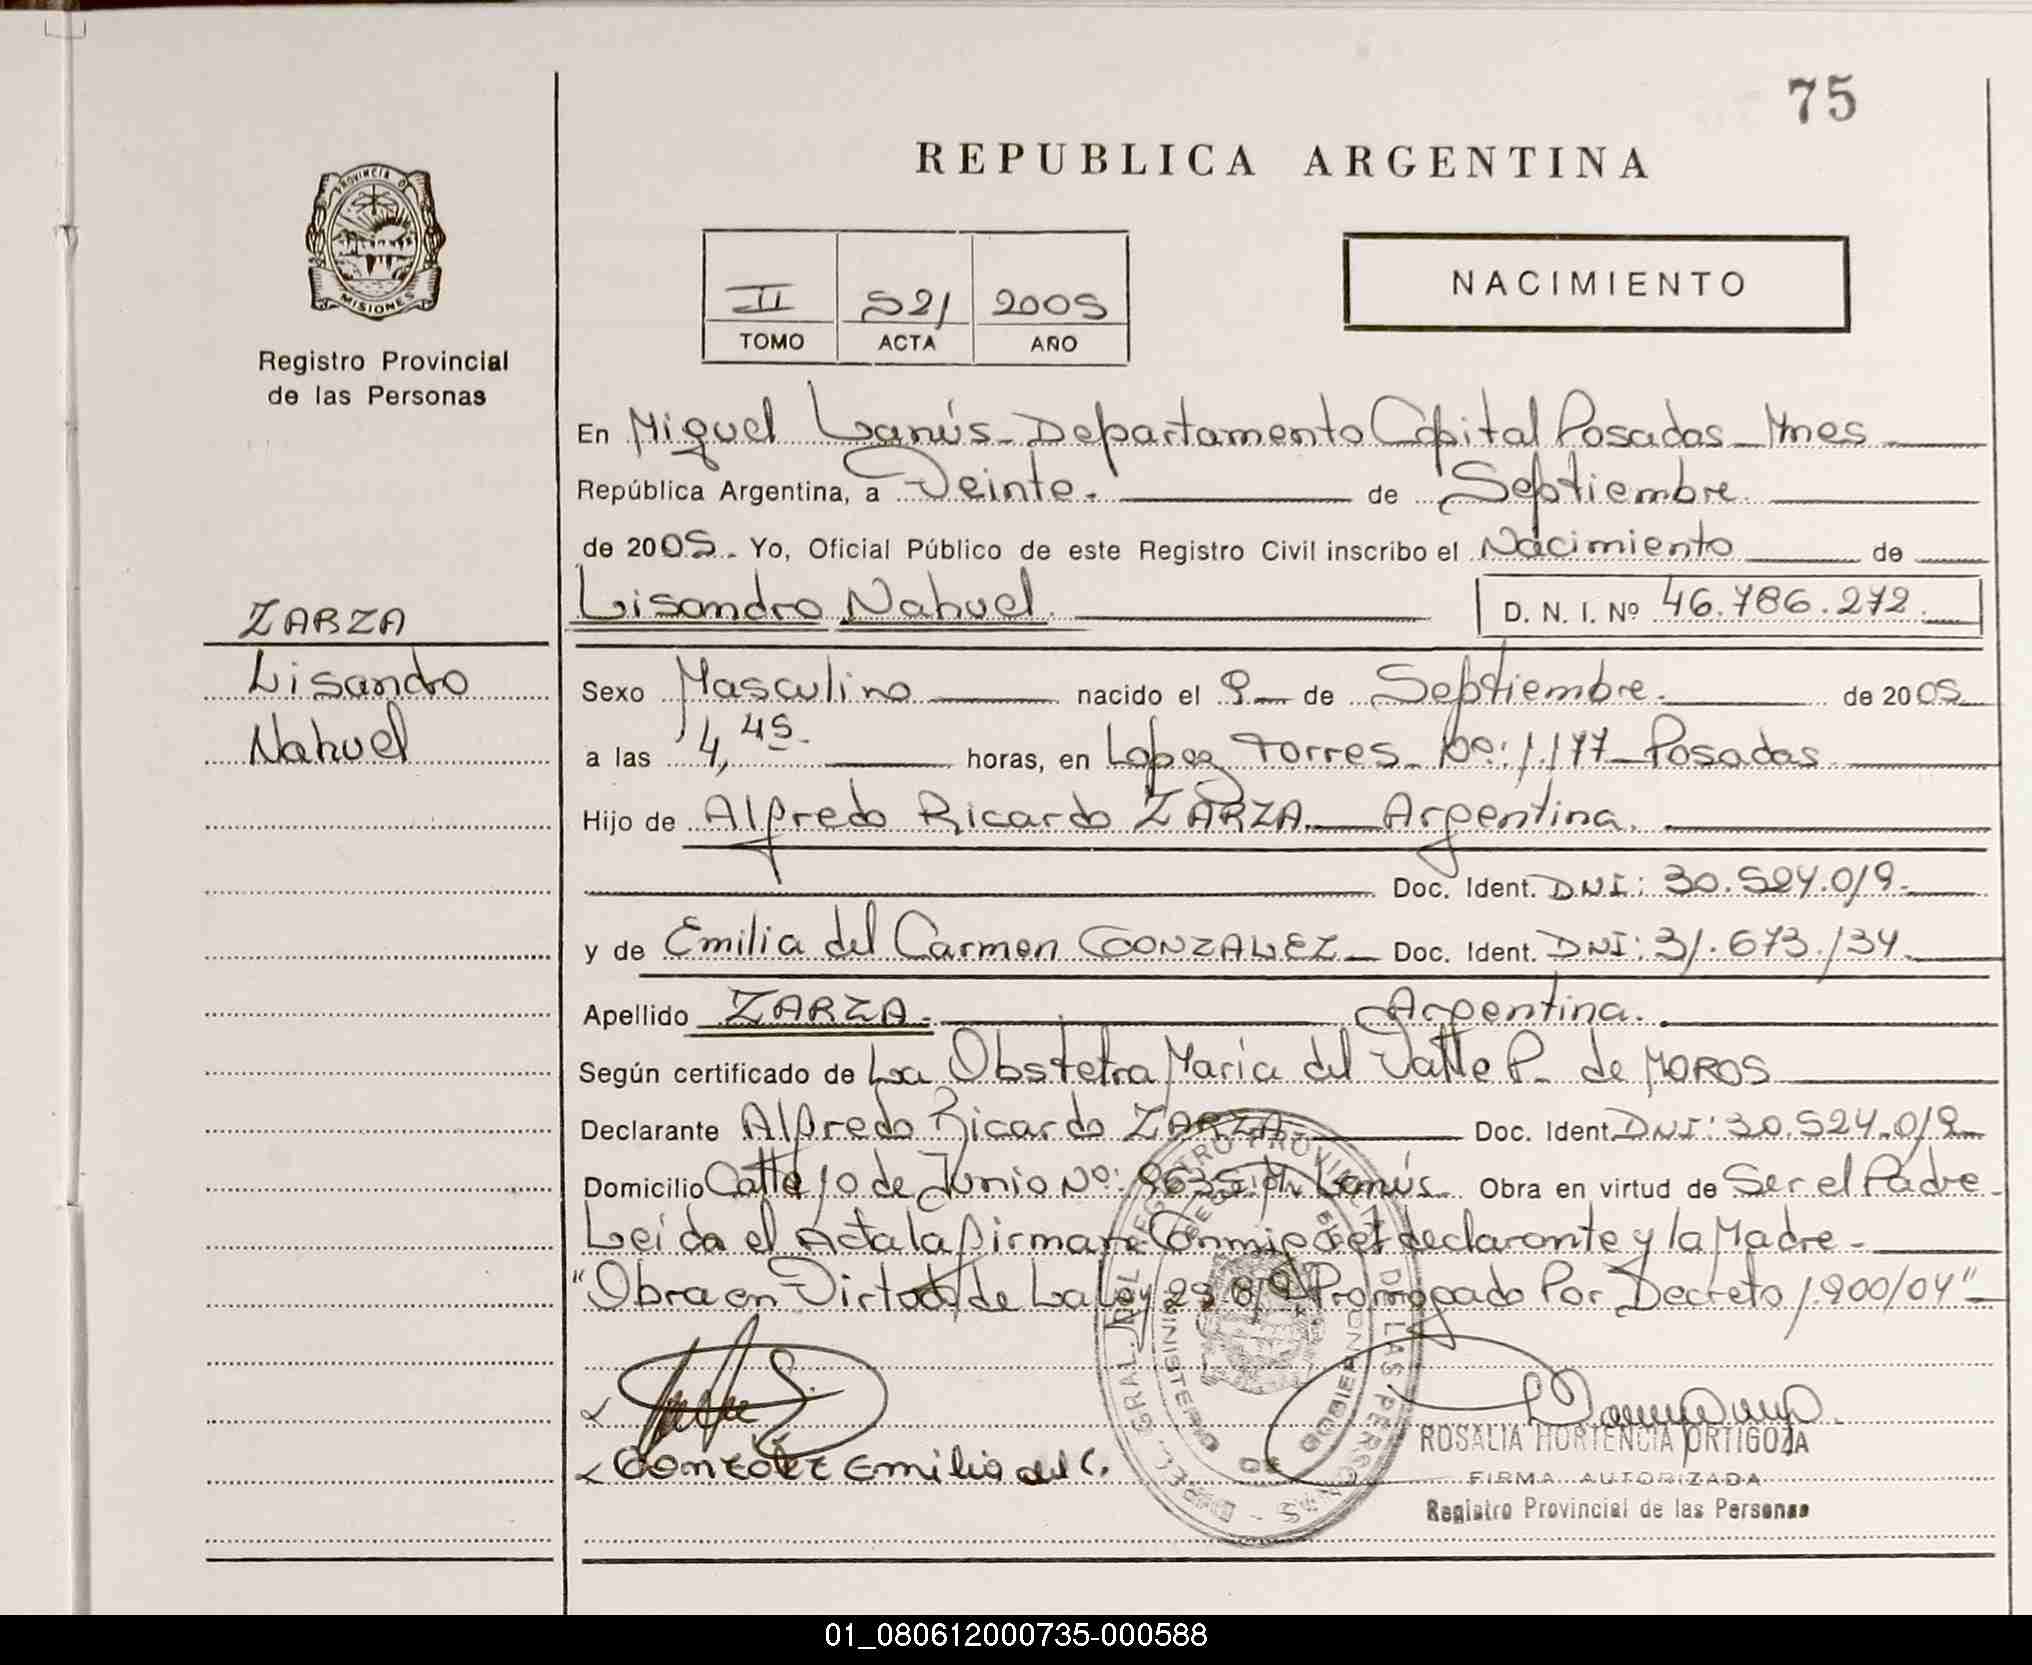 75
REPUBLICA ARGENTINA
PROVINCIA DE
MISIONES
Registro Provincial
de las Personas
II 521 2005
TOMO ACTA AÑO
NACIMIENTO
En Miguel Lanús - Departamento Capital Posadas - Mnes
República Argentina, a Veinte. de Septiembre.
de 2005. Yo, Oficial Público de este Registro Civil inscribo el Nacimiento de
Lisandro Nahuel. D. N. I. Nº 46.786.272.
ZARZA
Lisandro
Nahuel
Sexo Masculino nacido el 9 de Septiembre. de 2005
a las 4,45. horas, en Lopez Torres Nº: 1177 - Posadas
Hijo de Alfredo Ricardo ZARZA Argentina.
Doc. Ident. DNI: 30.524.019.
y de Emilia del Carmen GONZALEZ Doc. Ident. DNI: 31.673.134
Apellido ZARZA. Argentina.
Según certificado de La Obstetra María del Valle P. de MOROS
Declarante Alfredo Ricardo ZARZA Doc. Ident. DNI: 30.524.019
Domicilio Calle 10 de Junio Nº: 9635 M. Lanús. Obra en virtud de Ser el Padre
Leída el Acta la firman Conmigo el declarante y la Madre -
"Obra en Virtud de La Ley 25.819 Prorrogado Por Decreto 1.900/04"
Gonzalez Emilia del C.
ROSALIA HORTENCIA ORTIGOZA
FIRMA AUTORIZADA
Registro Provincial de las Personas
DIREC. GRAL. DEL REGISTRO PROVINCIAL DE LAS PERSONAS
MINISTERIO DE GOBIERNO
01_080612000735-000588